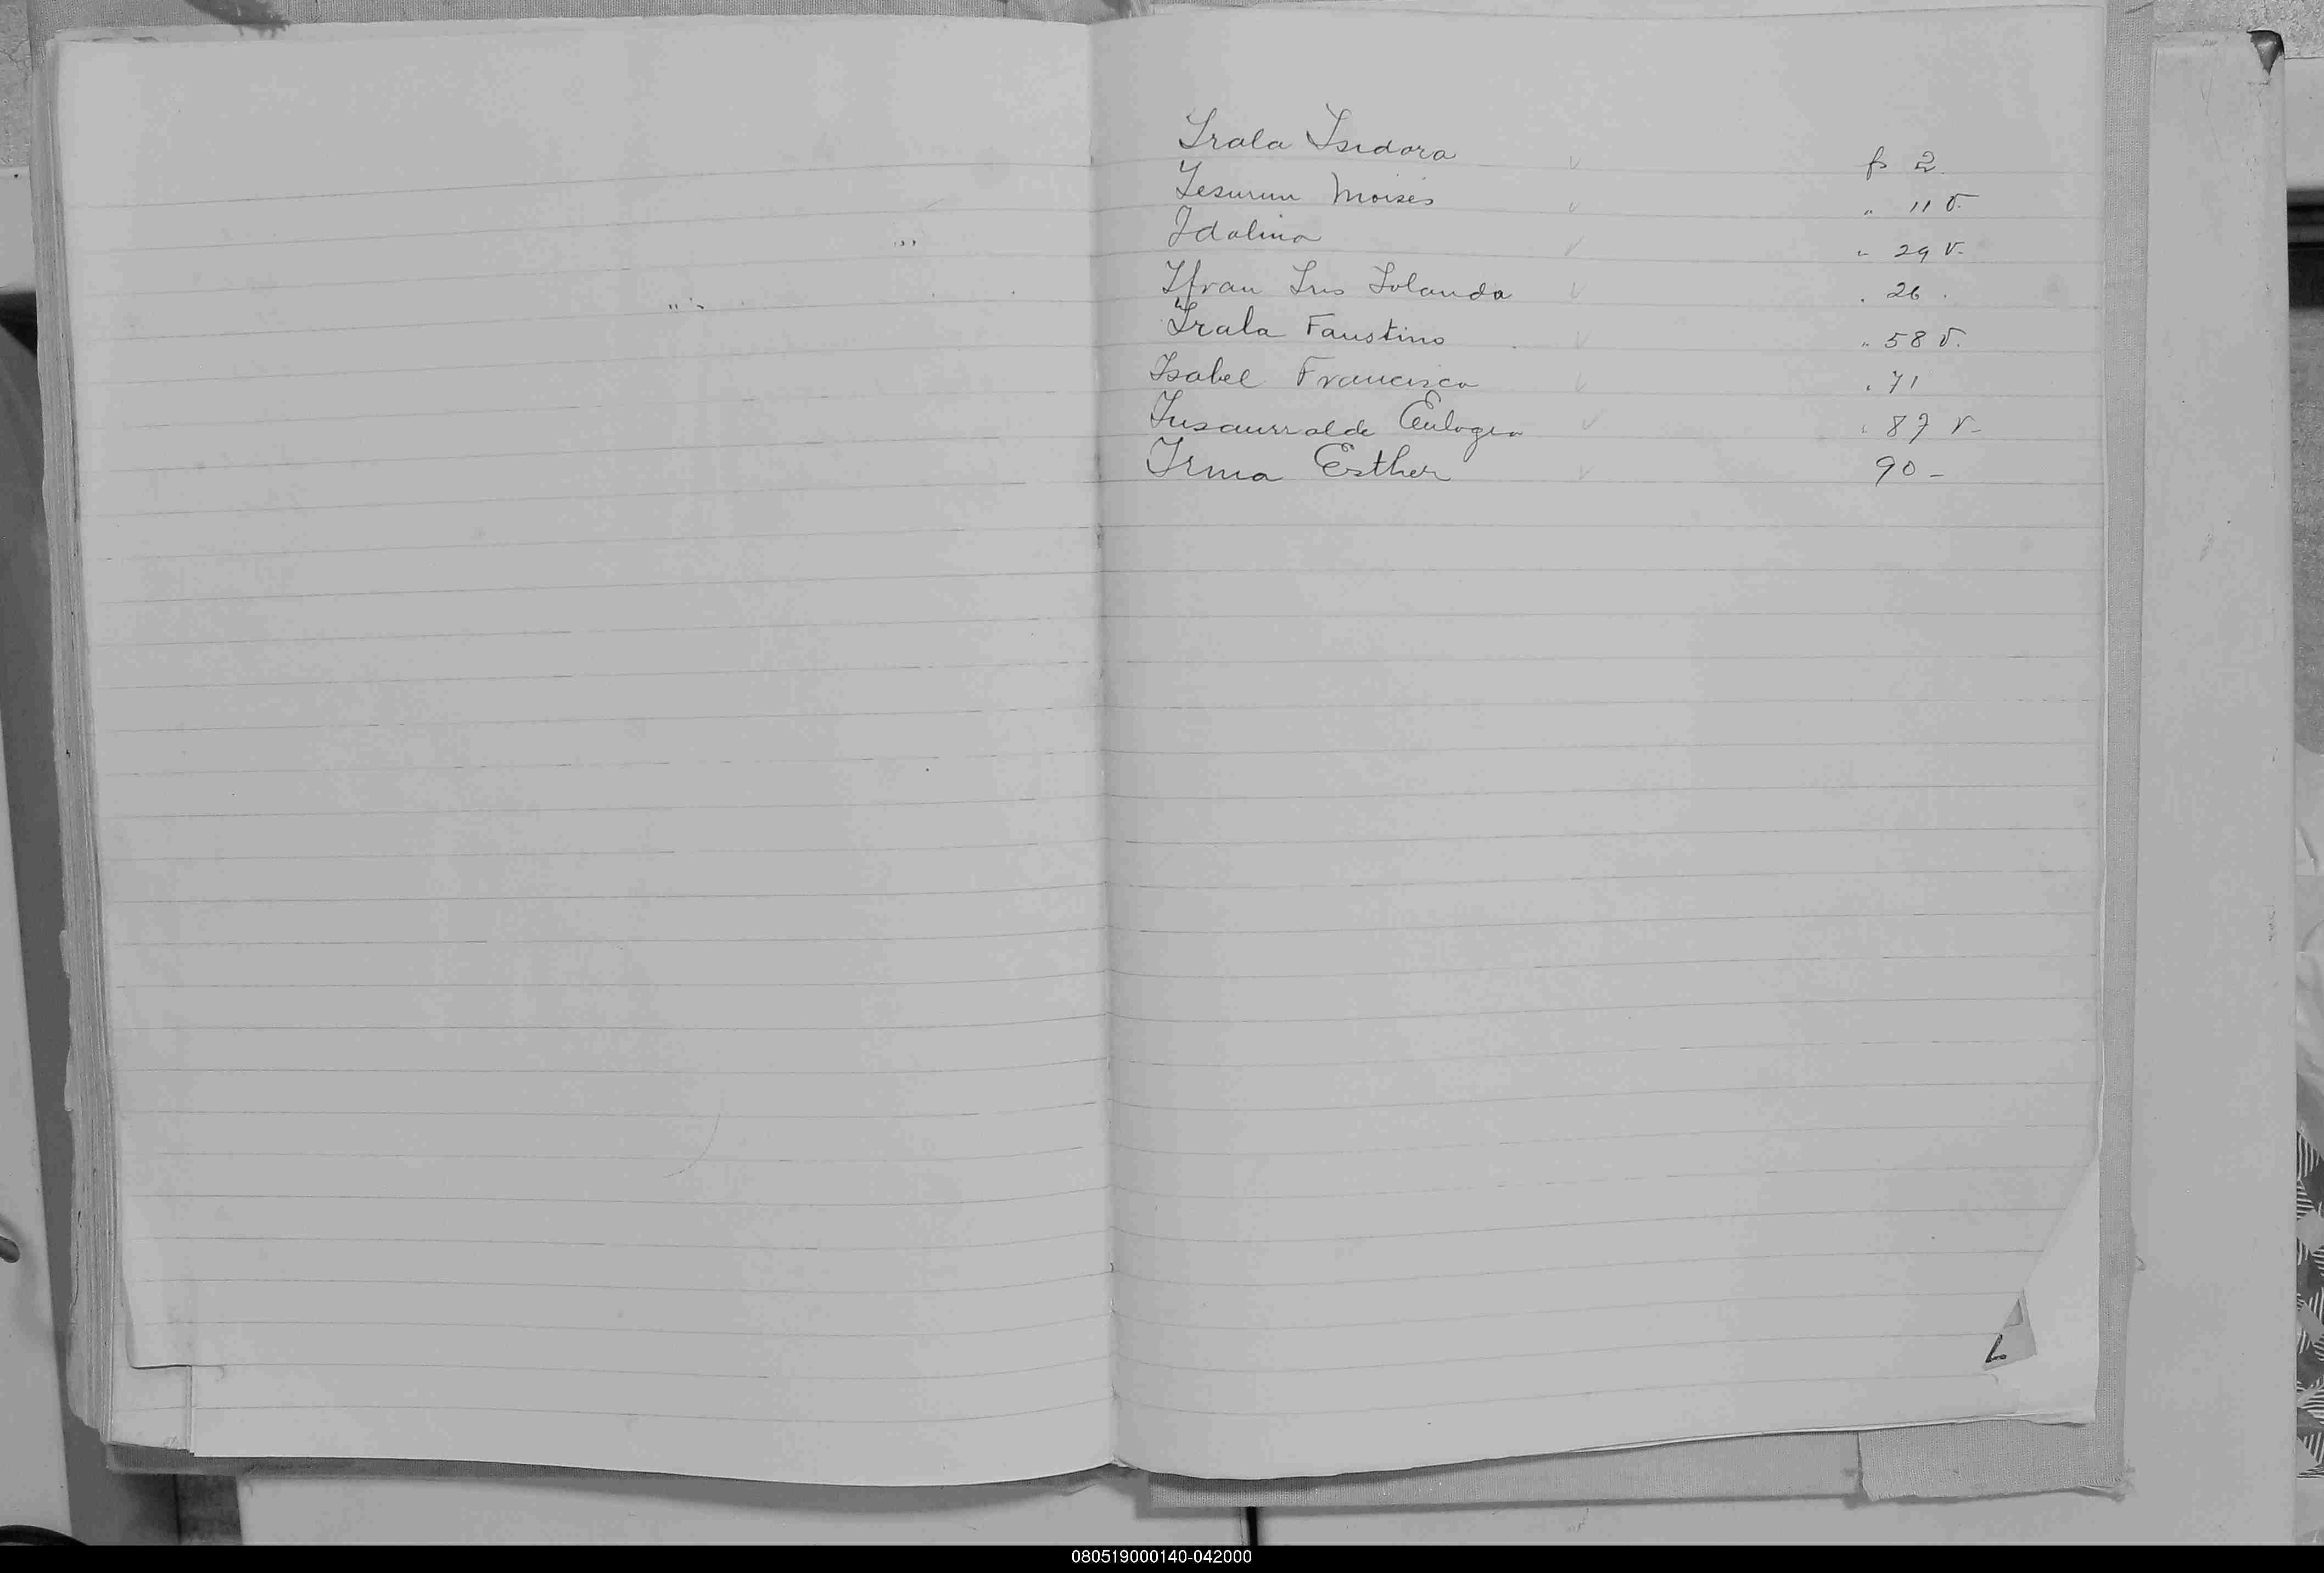 Irala Isidora f 2.
Iesurum Moisés " 11 v.
Idalina " 29 v.
Ifran Iris Iolanda . 26 .
Irala Faustino " 58 v.
Isabel Francisca . 71
Insaurralde Eulogia . 87 v-
Irma Esther 90 -
L
080519000140-042000